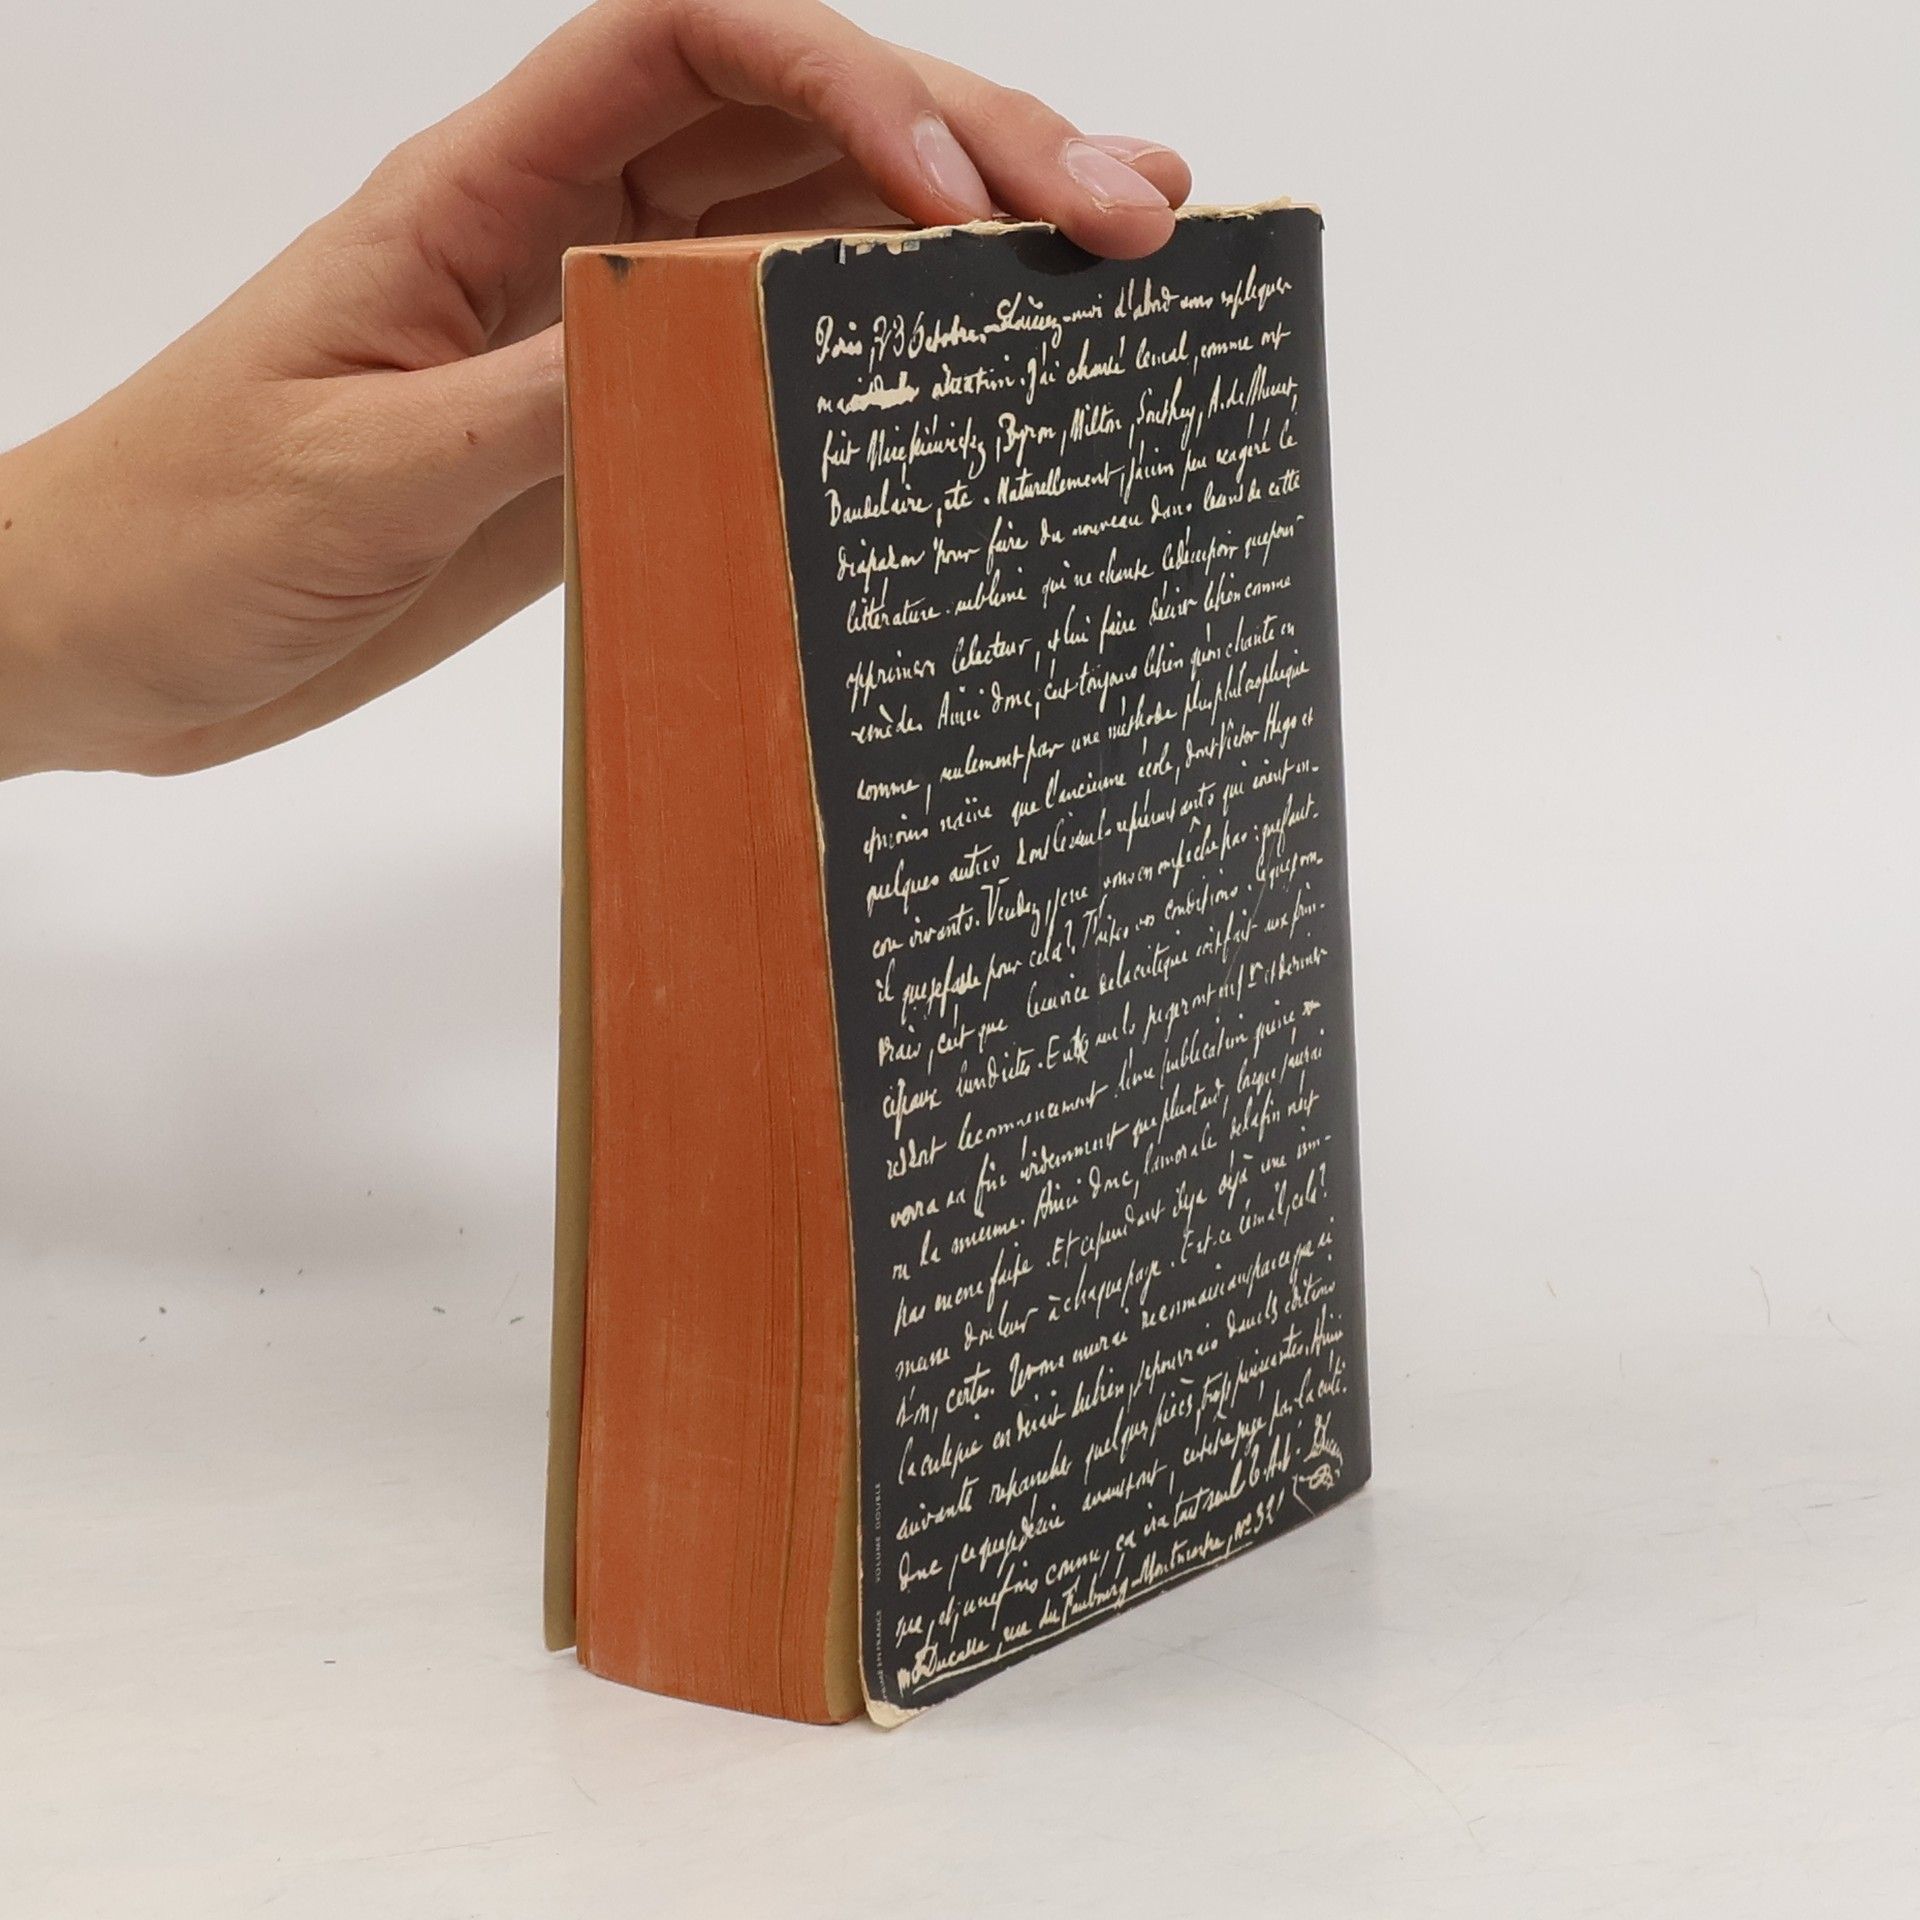 Paris, 23 Octobre. – Laissez-moi d'abord vous expliquer
ma situation. J'ai chanté le mal, comme ont
fait Mickiéwickz, Byron, Milton, Southey, A. de Musset,
Baudelaire, etc. Naturellement, j'ai un peu exagéré le
diapason pour faire du nouveau dans le sens de cette
littérature sublime qui ne chante le désespoir que pour
opprimer le lecteur, et lui faire désirer le bien comme
remède. Ainsi donc, c'est toujours le bien qu'on chante en
somme, seulement par une méthode plus philosophique
et moins naïve que l'ancienne école, dont Victor Hugo et
quelques autres sont les seuls représentants qui soient en-
core vivants. Vendez, je ne vous en empêche pas : que faut-
il que je fasse pour cela? Faites vos conditions. Ce que je vou-
drais, c'est que le service de la critique soit fait aux prin-
cipaux lundistes. Eux seuls jugeront en 1er et dernier
ressort le commencement d'une publication qui ne
verra sa fin évidemment que plus tard, lorsque j'aurai
vu la mienne. Ainsi donc, la morale de la fin n'est
pas encore faite. Et cependant il y a déjà une im-
mense douleur à chaque page. Est-ce le mal, cela?
Non, certes. Je vous en serai reconnaissant parce que si
la critique en disait du bien, je pourrais dans les éditions
suivantes retrancher quelques pièces, trop puissantes. Ainsi
donc, ce que je désire avant tout, c'est être jugé par la criti-
que, et, une fois connu, ça ira tout seul. T. A. V. I. Ducasse
M. I. Ducasse, rue du Faubourg-Montmartre, No 32.
IMPRIMÉ EN FRANCE VOLUME DOUBLE